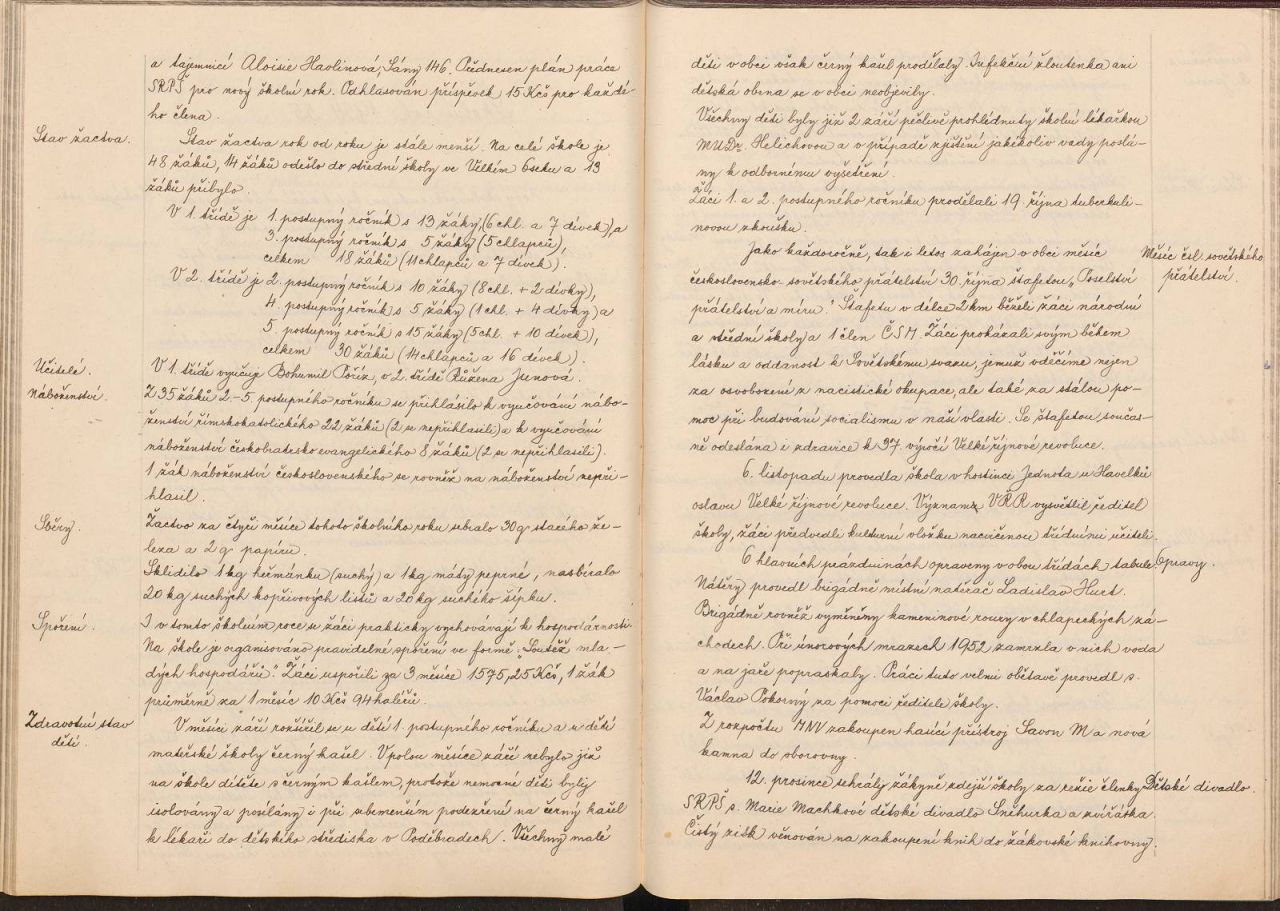 a tajemnicí Aloisie Havlinová, Sány 146. Přednesen plán práce
SRPŠ pro nový školní rok. Odhlasován příspěvek 15 Kčs pro každé-
ho člena.
Stav žactva.
Stav žactva rok od roku je stále menší. Na celé škole je
48 žáků, 14 žáků odešlo do střední školy ve Velkém Oseku a 13
žáků přibylo.
V 1. třídě je 1. postupný ročník s 13 žáky (6 chl. a 7 dívek), a
3. postupný ročník s 5 žáky (5 chlapců),
celkem 18 žáků (11 chlapců a 7 dívek).
V 2. třídě je 2. postupný ročník s 10 žáky (8 chl. + 2 dívky),
4. postupný ročník s 5 žáky (1 chl. + 4 dívky) a
5. postupný ročník s 15 žáky (5 chl. + 10 dívek),
celkem 30 žáků (14 chlapců a 16 dívek).
Učitelé.
V 1. třídě vyučuje Bohumil Poříz, v 2. třídě Růžena Junová.
Náboženství.
Z 35 žáků 2.-5. postupného ročníku se přihlásilo k vyučování nábo-
ženství římskokatolického 22 žáků (2 se nepřihlásili) a k vyučování
náboženství českobratrsko evangelického 8 žáků (2 se nepřihlásili).
1 žák náboženství československého se rovněž na náboženství nepři-
hlásil.
Sběry.
Žactvo za čtyři měsíce tohoto školního roku sebralo 30 q starého že-
leza a 2 q papíru.
Sklidilo 1 kg heřmánku (suchý) a 1 kg máty peprné, nasbíralo
20 kg suchých kopřivových listů a 20 kg suchého šípku.
Spoření.
I v tomto školním roce se žáci prakticky vychovávají k hospodárnosti.
Na škole je organisováno pravidelné spoření ve formě „Soutěž mla-
dých hospodářů." Žáci uspořili za 3 měsíce 1575,25 Kčs, 1 žák
průměrně za 1 měsíc 10 Kčs 94 haléřů.
Zdravotní stav
dětí.
V měsíci září rozšířil se u dětí 1. postupného ročníku a u dětí
mateřské školy černý kašel. V polou měsíce září nebylo již
na škole dítěte s černým kašlem, protože nemocné děti byly
isolovány a posílány i při sebemenším podezření na černý kašel
k lékaři do dětského střediska v Poděbradech. Všechny malé
děti v obci však černý kašel prodělaly. Infekční žloutenka ani
dětská obrna se v obci neobjevily.
Všechny děti byly již 2. září pečlivě prohlédnuty školní lékařkou
MUDr. Helichovou a v případě zjištění jakékoliv vady poslá-
ny k odbornému vyšetření.
Žáci 1. a 2. postupného ročníku prodělali 19. října tuberkuli-
novou zkoušku.
Měsíc čsl. sovětského
přátelství.
Jako každoročně, tak i letos zahájen v obci měsíc
československo-sovětského přátelství 30. října štafetou „Poselství
přátelství a míru." Štafetu v délce 2 km běželi žáci národní
a střední školy a 1 člen ČSM. Žáci prokázali svým během
lásku a oddanost k Sovětskému svazu, jemuž vděčíme nejen
za osvobození z nacistické okupace, ale také za stálou po-
moc při budování socialismu v naší vlasti. Se štafetou součas-
ně odeslána i zdravice k 37. výročí Velké říjnové revoluce.
6. listopadu provedla škola v hostinci Jednota u Havelků
oslavu Velké říjnové revoluce. Význam VŘR vysvětlil ředitel
školy, žáci předvedli kulturní vložku nacvičenou třídními učiteli.
Opravy.
O hlavních prázdninách opraveny v obou třídách tabule.
Nátěry provedl brigádně místní natěrač Ladislav Hurt.
Brigádně rovněž vyměněny kameninové roury v chlapeckých zá-
chodech. Při únorových mrazech 1952 zamrzla v nich voda
a na jaře popraskaly. Práci tuto velmi obětavě provedl s.
Václav Pokorný za pomoci ředitele školy.
Z rozpočtu MNV zakoupen hasící přístroj Savon M a nová
kamna do sborovny.
Dětské divadlo.
12. prosince sehrály žákyně zdejší školy za režie členky
SRPŠ s. Marie Machkové dětské divadlo Sněhurka a zvířátka.
Čistý zisk věnován na zakoupení knih do žákovské knihovny.